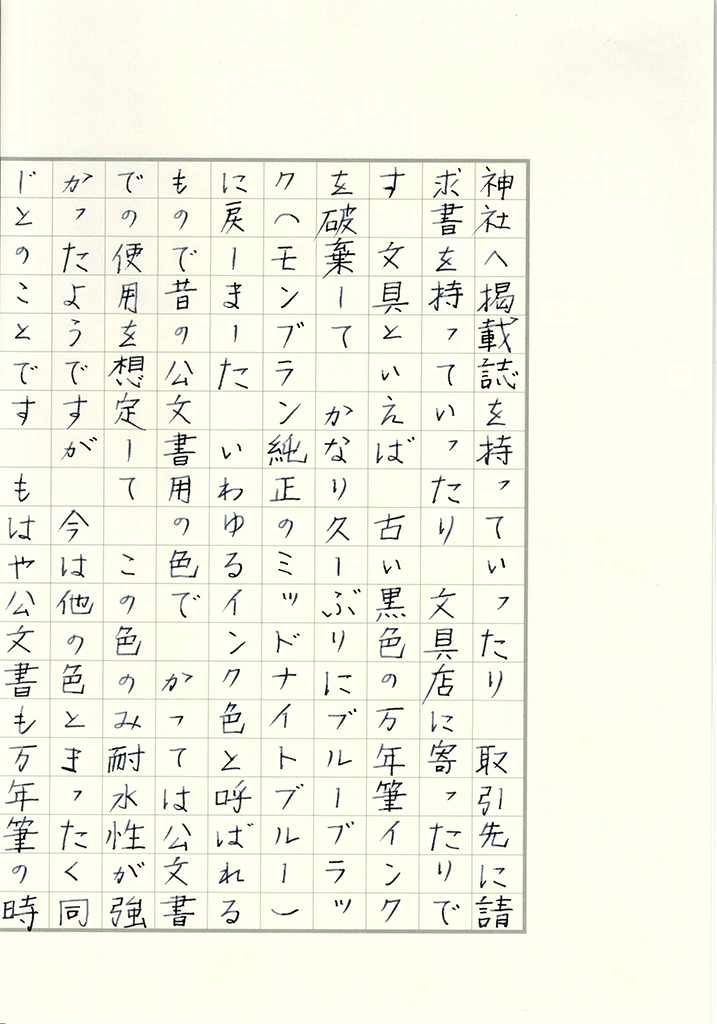 神社へ掲載誌を持っていったり　取引先に請
求書を持っていったり　文具店に寄ったりで
す　文具といえば　古い黒色の万年筆インク
を破棄して　かなり久しぶりにブルーブラッ
ク（モンブラン純正のミッドナイトブルー）
に戻しました　いわゆるインク色と呼ばれる
もので昔の公文書用の色で　かつては公文書
での使用を想定して　この色のみ耐水性が強
かったようですが　今は他の色とまったく同
じとのことです　もはや公文書も万年筆の時